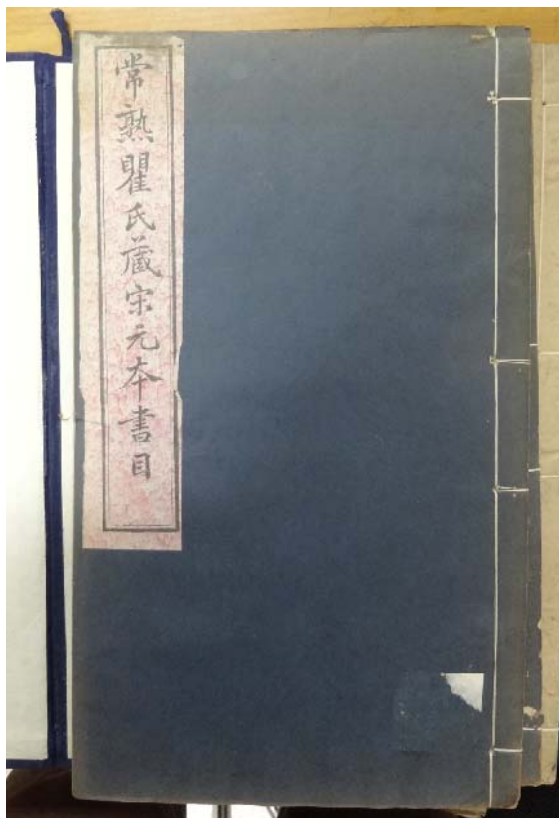 常熟瞿氏藏宋元本書目